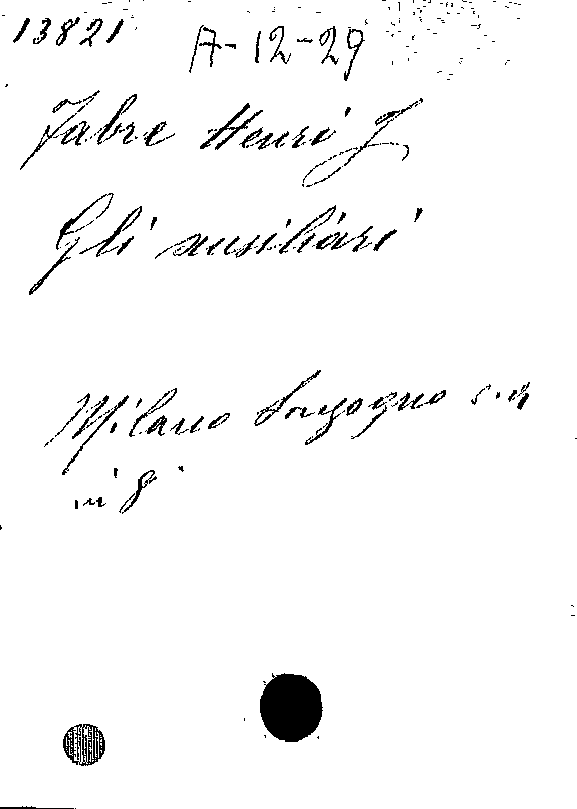 13821 A-12-29
Fabre Henri J
Gli ausiliari
Milano Sonzogno s.d.
in 8°